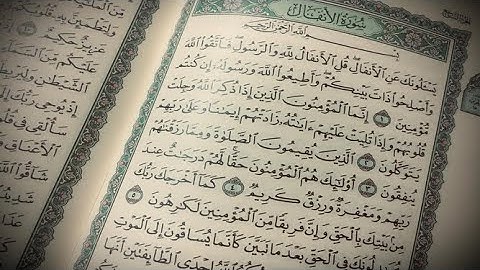 سُورَةُ الأَنْفَالِ
بِسْمِ اللَّهِ الرَّحْمَٰنِ الرَّحِيمِ
يَسْـَٔلُونَكَ عَنِ ٱلْأَنفَالِ قُلِ ٱلْأَنفَالُ لِلَّهِ وَٱلرَّسُولِ فَٱتَّقُوا۟ ٱللَّهَ
وَأَصْلِحُوا۟ ذَاتَ بَيْنِكُمْ وَأَطِيعُوا۟ ٱللَّهَ وَرَسُولَهُۥٓ إِن كُنتُم
مُّؤْمِنِينَ ١ إِنَّمَا ٱلْمُؤْمِنُونَ ٱلَّذِينَ إِذَا ذُكِرَ ٱللَّهُ وَجِلَتْ
قُلُوبُهُمْ وَإِذَا تُلِيَتْ عَلَيْهِمْ ءَايَٰتُهُۥ زَادَتْهُمْ إِيمَٰنًا وَعَلَىٰ رَبِّهِمْ
يَتَوَكَّلُونَ ٢ ٱلَّذِينَ يُقِيمُونَ ٱلصَّلَوٰةَ وَمِمَّا رَزَقْنَٰهُمْ
يُنفِقُونَ ٣ أُو۟لَٰٓئِكَ هُمُ ٱلْمُؤْمِنُونَ حَقًّا لَّهُمْ دَرَجَٰتٌ عِندَ
رَبِّهِمْ وَمَغْفِرَةٌ وَرِزْقٌ كَرِيمٌ ٤ كَمَآ أَخْرَجَكَ رَبُّكَ
مِنۢ بَيْتِكَ بِٱلْحَقِّ وَإِنَّ فَرِيقًا مِّنَ ٱلْمُؤْمِنِينَ لَكَٰرِهُونَ ٥
يُجَٰدِلُونَكَ فِى ٱلْحَقِّ بَعْدَ مَا تَبَيَّنَ كَأَنَّمَا يُسَاقُونَ إِلَى ٱلْمَوْتِ
ٱللَّهُ إِحْدَى ٱلطَّآئِفَتَيْنِ أَنَّهَا
وَلِتَطْمَئِنَّ بِهِ
عَزِيزٌ حَكِيمٌ
عَلَيْكُم مِّنَ
ٱلشَّيْطَٰنِ
إِذْ يُوحِى رَبُّكَ
سَأُلْقِى فِى
ٱلْأَعْنَاقِ
شَآقُّوا۟ ٱللَّهَ
شَدِيدُ